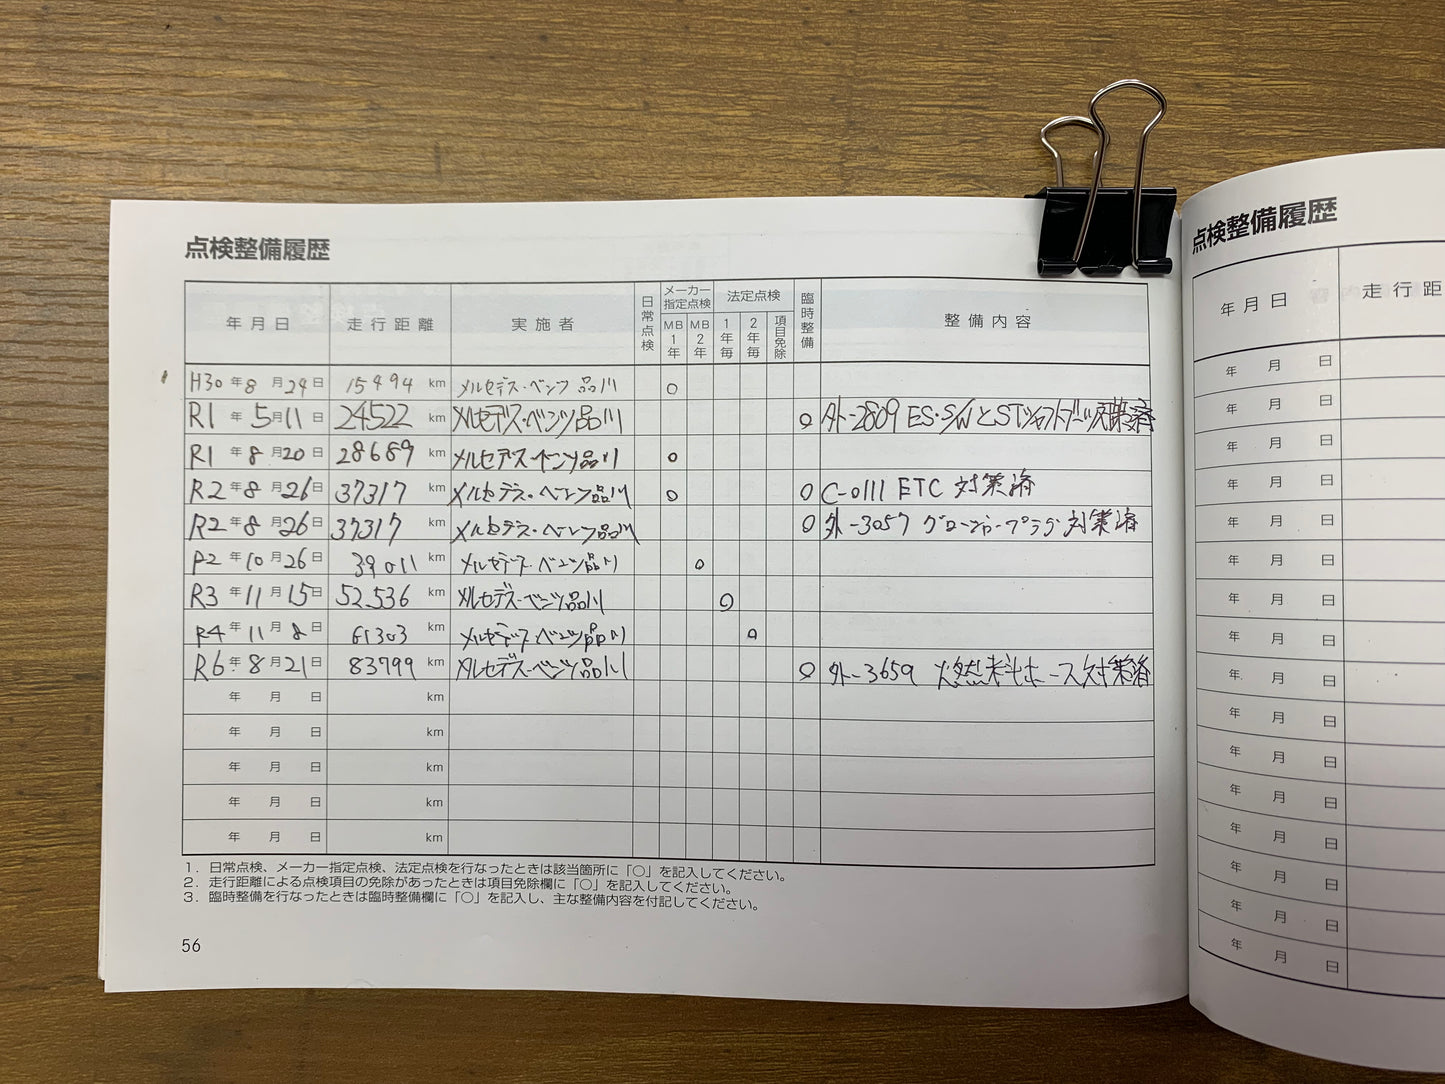 点検整備履歴
年月日 走行距離 実施者 日常点検 メーカー指定点検 MB1年 MB2年 法定点検 1年毎 2年毎 項目免除 臨時整備 整備内容
H30年8月24日 15494km メルセデス・ベンツ品川 ○
R1年5月11日 24522km メルセデス・ベンツ品川 ○ 外-2809 ES・S/WとSTシャフト
R1年8月20日 28689km メルセデス・ベンツ品川 ○
R2年8月26日 37317km メルセデス・ベンツ品川 ○ ○ C-0111 ETC 対策済
R2年8月26日 37317km メルセデス・ベンツ品川 ○ 外-3057 グロープラグ対策済
R2年10月26日 39011km メルセデス・ベンツ品川 ○
R3年11月15日 52,536km メルセデス・ベンツ品川 ○
R4年11月8日 61303km メルセデス・ベンツ品川 ○
R6年8月21日 83799km メルセデス・ベンツ品川 ○ 外-3659 燃料ホース対策済
年 月 日 km
年 月 日 km
年 月 日 km
年 月 日 km
年 月 日 km
1．日常点検、メーカー指定点検、法定点検を行なったときは該当箇所に「○」を記入してください。
2．走行距離による点検項目の免除があったときは項目免除欄に「○」を記入してください。
3．臨時整備を行なったときは臨時整備欄に「○」を記入し、主な整備内容を付記してください。
56
点検整備履歴
年月日 走行距
年 月 日
年 月 日
年 月 日
年 月 日
年 月 日
年 月 日
年 月 日
年 月 日
年 月 日
年 月 日
年 月 日
年 月 日
年 月 日
年 月 日
年 月 日
年 月 日